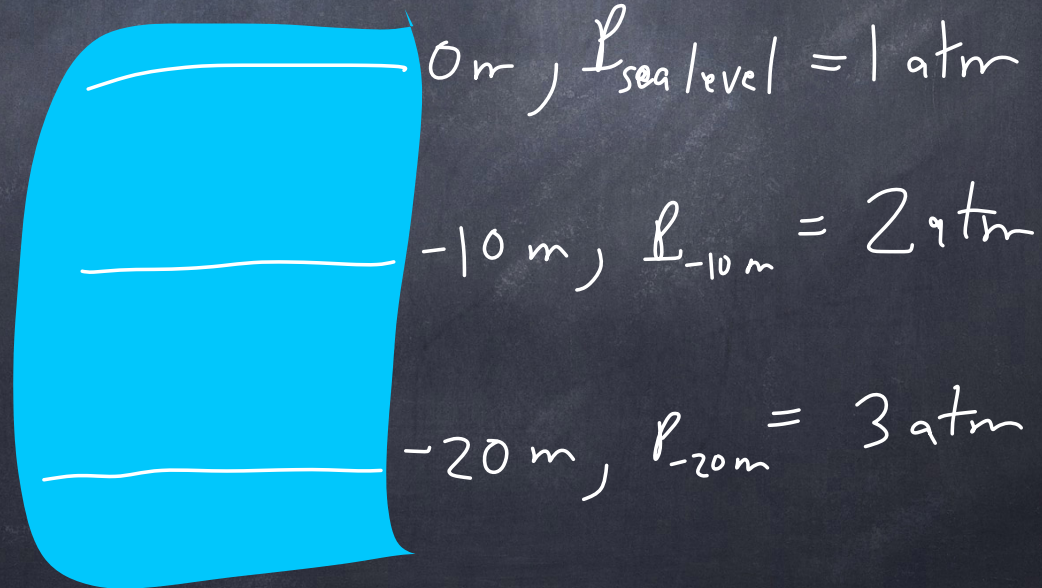 0 m, P sea level = 1 atm
-10 m, P -10 m = 2 atm
-20 m, P -20 m = 3 atm